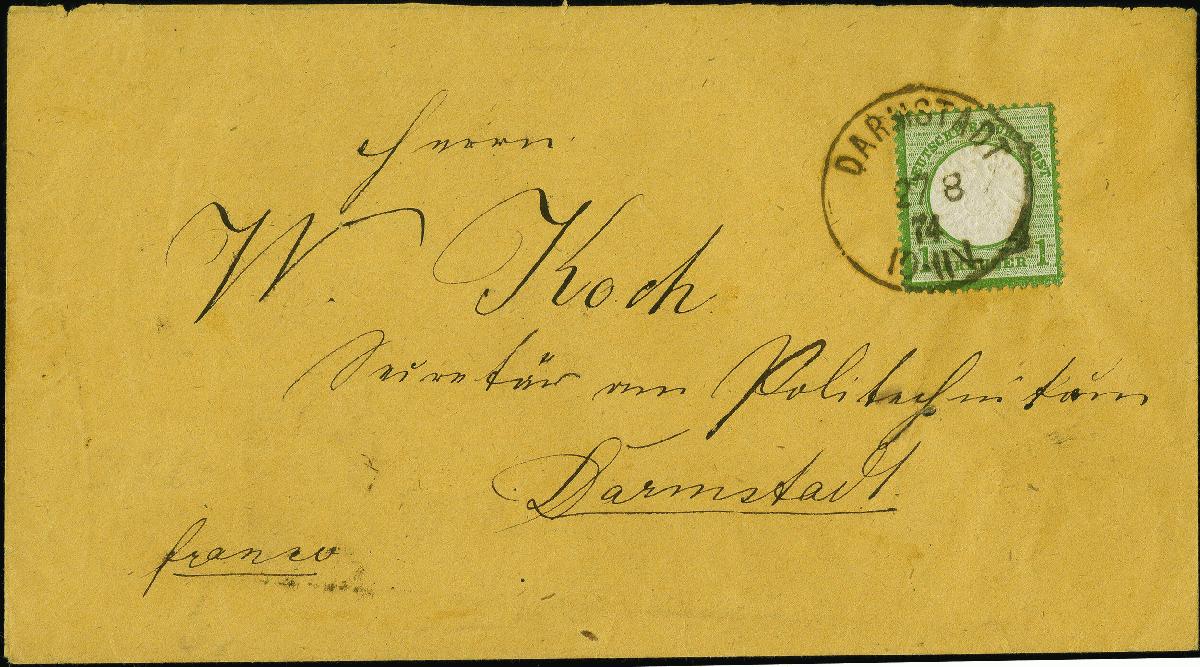 Herrn
W. Koch
Secretär am Politechnikum
Darmstadt.
franco
DARMSTADT
27 8
74
DEUTSCHE REICHS-POST
1 KREUZER 1